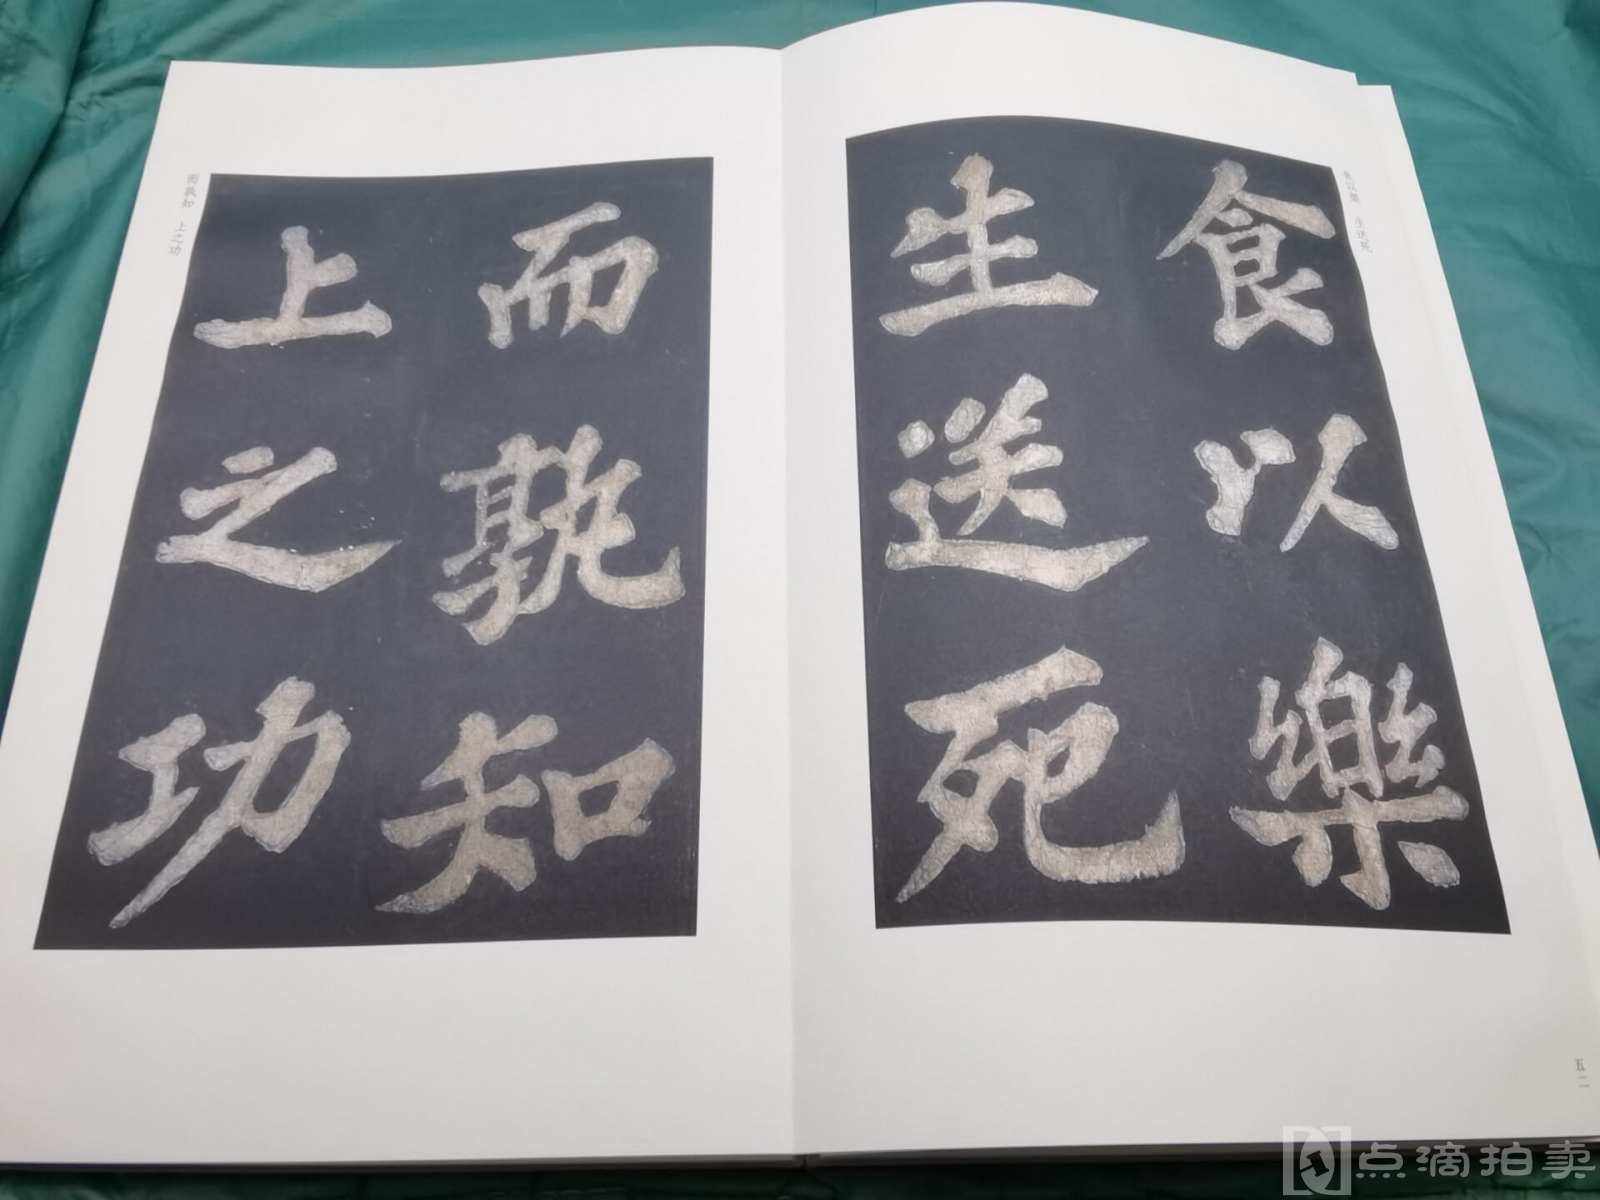 食以樂
生送死
而孰知
上之功
食以樂 生送死
而孰知 上之功
五二
点滴拍卖